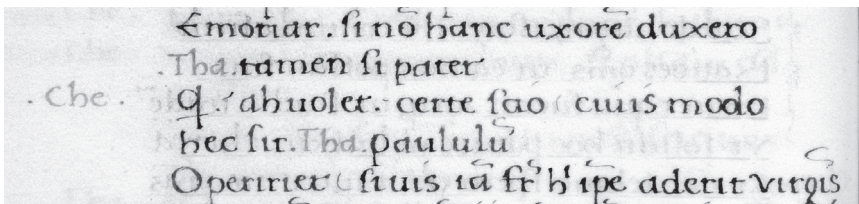 Emoriar . si nō hanc uxorē duxero
.Tha. tamen si pater
. Che . Q . ahuolet. certe scio ( ciuis modo
hec sit. Tha. paululū
Operirier ( siuis iā fr̄ h' ip̄e aderit virgīs